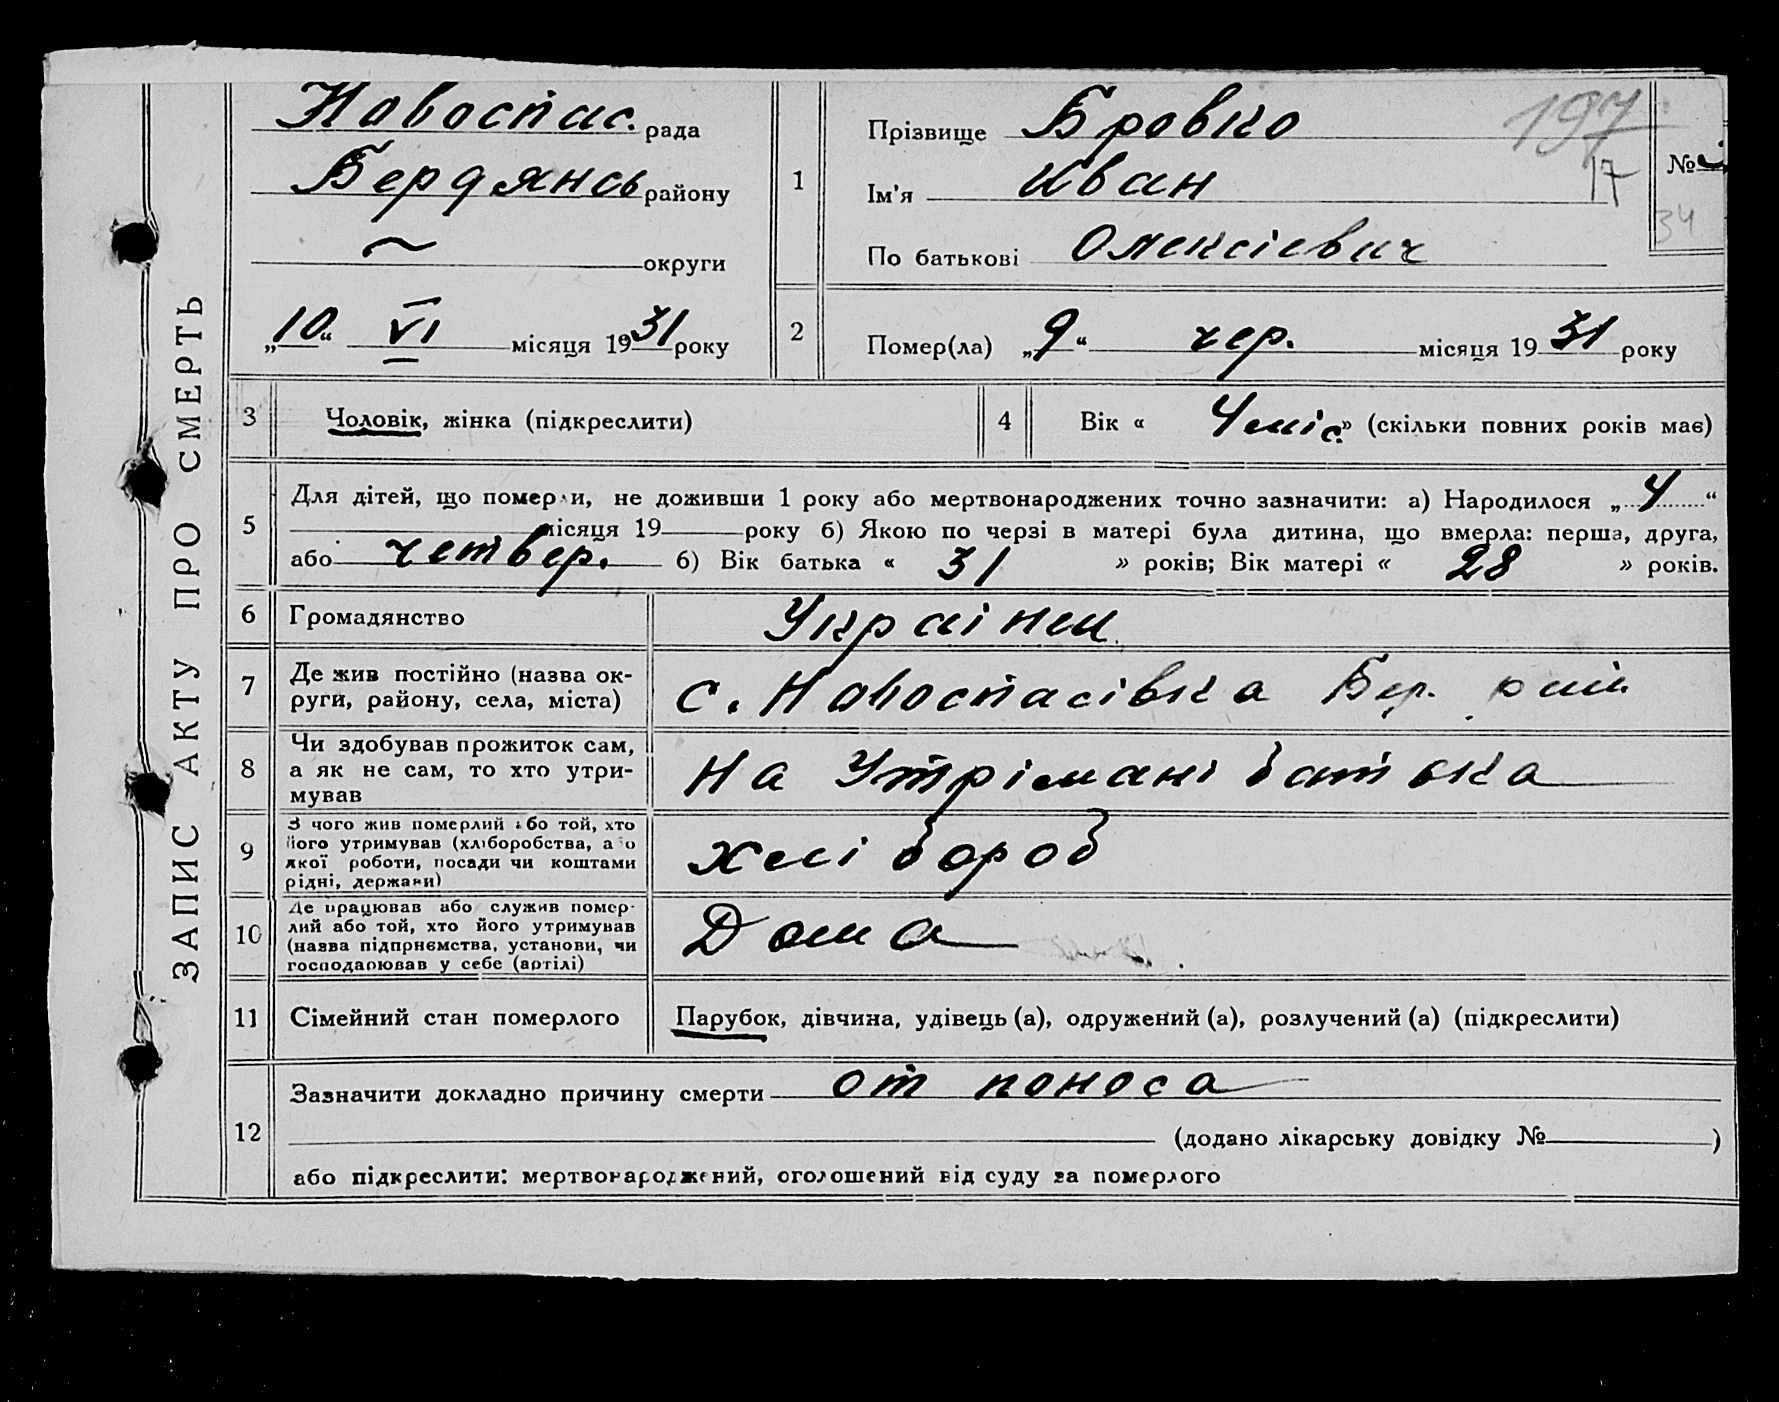 ЗАПИС АКТУ ПРО СМЕРТЬ
Новоспас. рада
Бердянсь району
~ округи
„10“ VI місяця 1931 року
1
Прізвище Бровко
Ім'я Иван
По батькові Олексієвич
197
17
№
34
2
Помер(ла) „9“ чер. місяця 1931 року
3
Чоловік, жінка (підкреслити)
4
Вік « 4 міс. » (скільки повних років має)
5
Для дітей, що померли, не доживши 1 року або мертвонароджених точно зазначити: а) Народилося „4“
місяця 19 року б) Якою по черзі в матері була дитина, що вмерла: перша, друга,
або четвер. б) Вік батька « 31 » років; Вік матері « 28 » років.
6
Громадянство
Україн
7
Де жив постійно (назва ок-
руги, району, села, міста)
с. Новоспасівка Бер. рай
8
Чи здобував прожиток сам,
а як не сам, то хто утри-
мував
На Утрімані батька
9
З чого жив померлий або той, хто
його утримував (хліборобства, або
якої роботи, посади чи коштами
рідні, держави)
хлібороб
10
Де працював або служив помер-
лий або той, хто його утримував
(назва підприємства, установи, чи
господарював у себе (артілі)
Дома
11
Сімейний стан померлого
Парубок, дівчина, удівець (а), одружений (а), розлучений (а) (підкреслити)
12
Зазначити докладно причину смерти от поноса
(додано лікарську довідку № )
або підкреслити: мертвонароджений, оголошений від суду за померлого